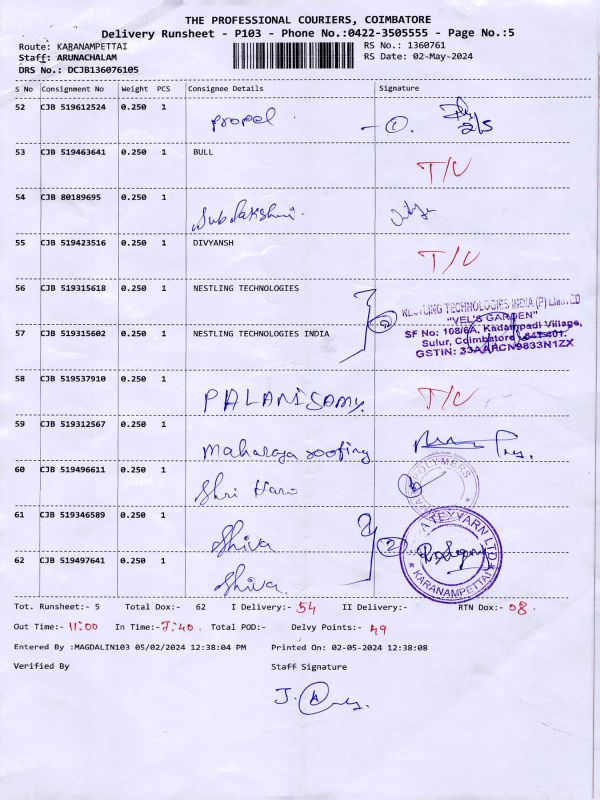 THE PROFESSIONAL COURIERS, COIMBATORE
Delivery Runsheet - P103 - Phone No.:0422-3505555 - Page No.:5
Route: KARANAMPETTAI RS No.: 1360761
Staff: ARUNACHALAM RS Date: 02-May-2024
DRS No.: DCJB136076105
S No Consignment No Weight PCS Consignee Details Signature
52 CJB 519612524 0.250 1 Propel - 1. 2/5
53 CJB 519463641 0.250 1 BULL T/C
54 CJB 80189695 0.250 1 Subulakshmi.
55 CJB 519423516 0.250 1 DIVYANSH T/C
56 CJB 519315618 0.250 1 NESTLING TECHNOLOGIES
2
NESTLING TECHNOLOGIES INDIA (P) LimiTED
"VEL'S GARDEN"
SF No: 108/6A, Kadampadi Village,
Sulur, Coimbatore - 641 401.
GSTIN: 33AARCN9833N1ZX
57 CJB 519315602 0.250 1 NESTLING TECHNOLOGIES INDIA
58 CJB 519537910 0.250 1 PALANISAMY T/C
59 CJB 519312567 0.250 1 Maharaja roofing
60 CJB 519496611 0.250 1 Shri Hari
POLYMERS
61 CJB 519346589 0.250 1 Shiva
2
A TEXYARN LTD
KARANAMPETTAI
62 CJB 519497641 0.250 1 Shiva
Tot. Runsheet:- 5 Total Dox:- 62 I Delivery:- 54 II Delivery:- RTN Dox:- 08.
Out Time:- 11:00 In Time:- 7:40. Total POD:- Delvy Points:- 49
Entered By :MAGDALIN103 05/02/2024 12:38:04 PM Printed On: 02-05-2024 12:38:08
Verified By Staff Signature